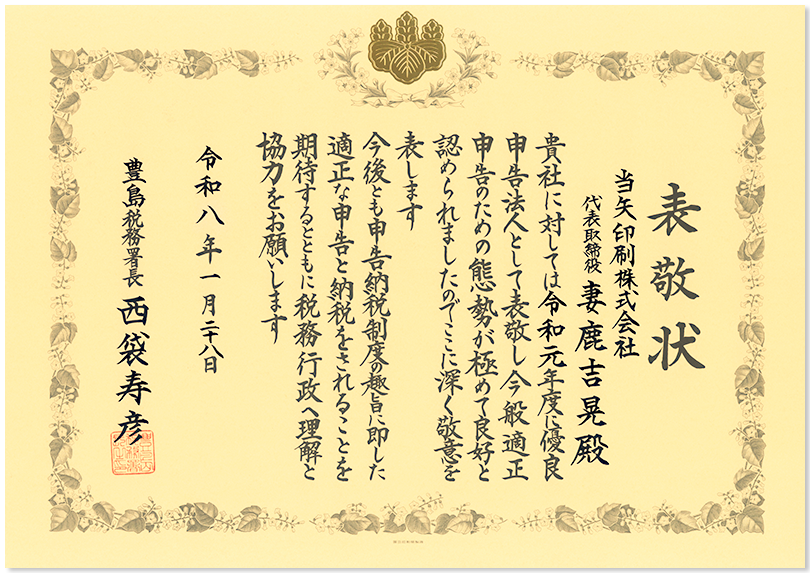 表敬状
当矢印刷株式会社
代表取締役 妻鹿吉晃殿
貴社に対しては令和元年度に優良
申告法人として表敬し今般適正
申告のための態勢が極めて良好と
認められましたのでここに深く敬意を
表します
今後とも申告納税制度の趣旨に即した
適正な申告と納税をされることを
期待するとともに税務行政へ理解と
協力をお願いします
令和八年一月二十八日
豊島税務署長 西袋寿彦